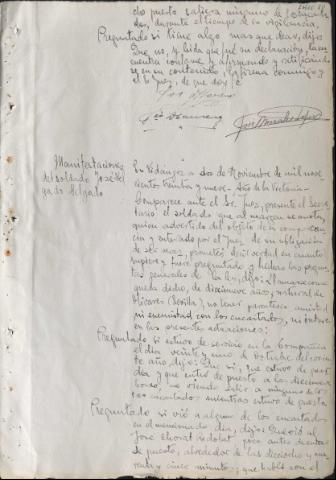 do puesto saliera ninguno de
dos, durante el tiempo de su vigilancia.
Preguntado si tiene algo mas que decir, dijo:
Que no, y leida que fué su declaración, la en-
cuentra conforme y afirmando y ratificando-
se en su contenido, la firma conmigo y
el Sr Juez, de que doy fe.
Manifestaciones
del soldado José
gado Delgado
En a dos de Noviembre de mil nove-
cientos treinta y nueve. Año de la Victoria.
Comparece ante el Sr. Juez, presente el Secre-
tario, el soldado que al margen se anota,
quien advertido del objeto de la compareen-
cia y enterado por el Juez de su obligación
de ser veraz, prometió decir verdad en cuanto
supiere y fuere preguntado y hechas las pregun-
tas generales de la ley, dijo: Llamarse como
queda dicho, de diecinueve años, natural de
(Sevilla), no tener parentesco amistad
ni enemistad con los encartados, ni interes
en las presentes actuaciones;
Preguntado si estuvo de servicio en la Compañia
el dia veinte y uno de Octubre del corrien-
te año, dijo: Que si, que estuvo de guar-
dia y que entró de puesto a las dieciocho
horas, no viendo salir a ninguno de los
encartados mientras estuvo de puesto
Preguntado si vió a alguno de los encartados
en el mencionado dia, dijo: Que vió al
José poco antes de entrar
de puesto, alrededor de las diecisiete y cua-
renta y cinco minutos, que habló con el